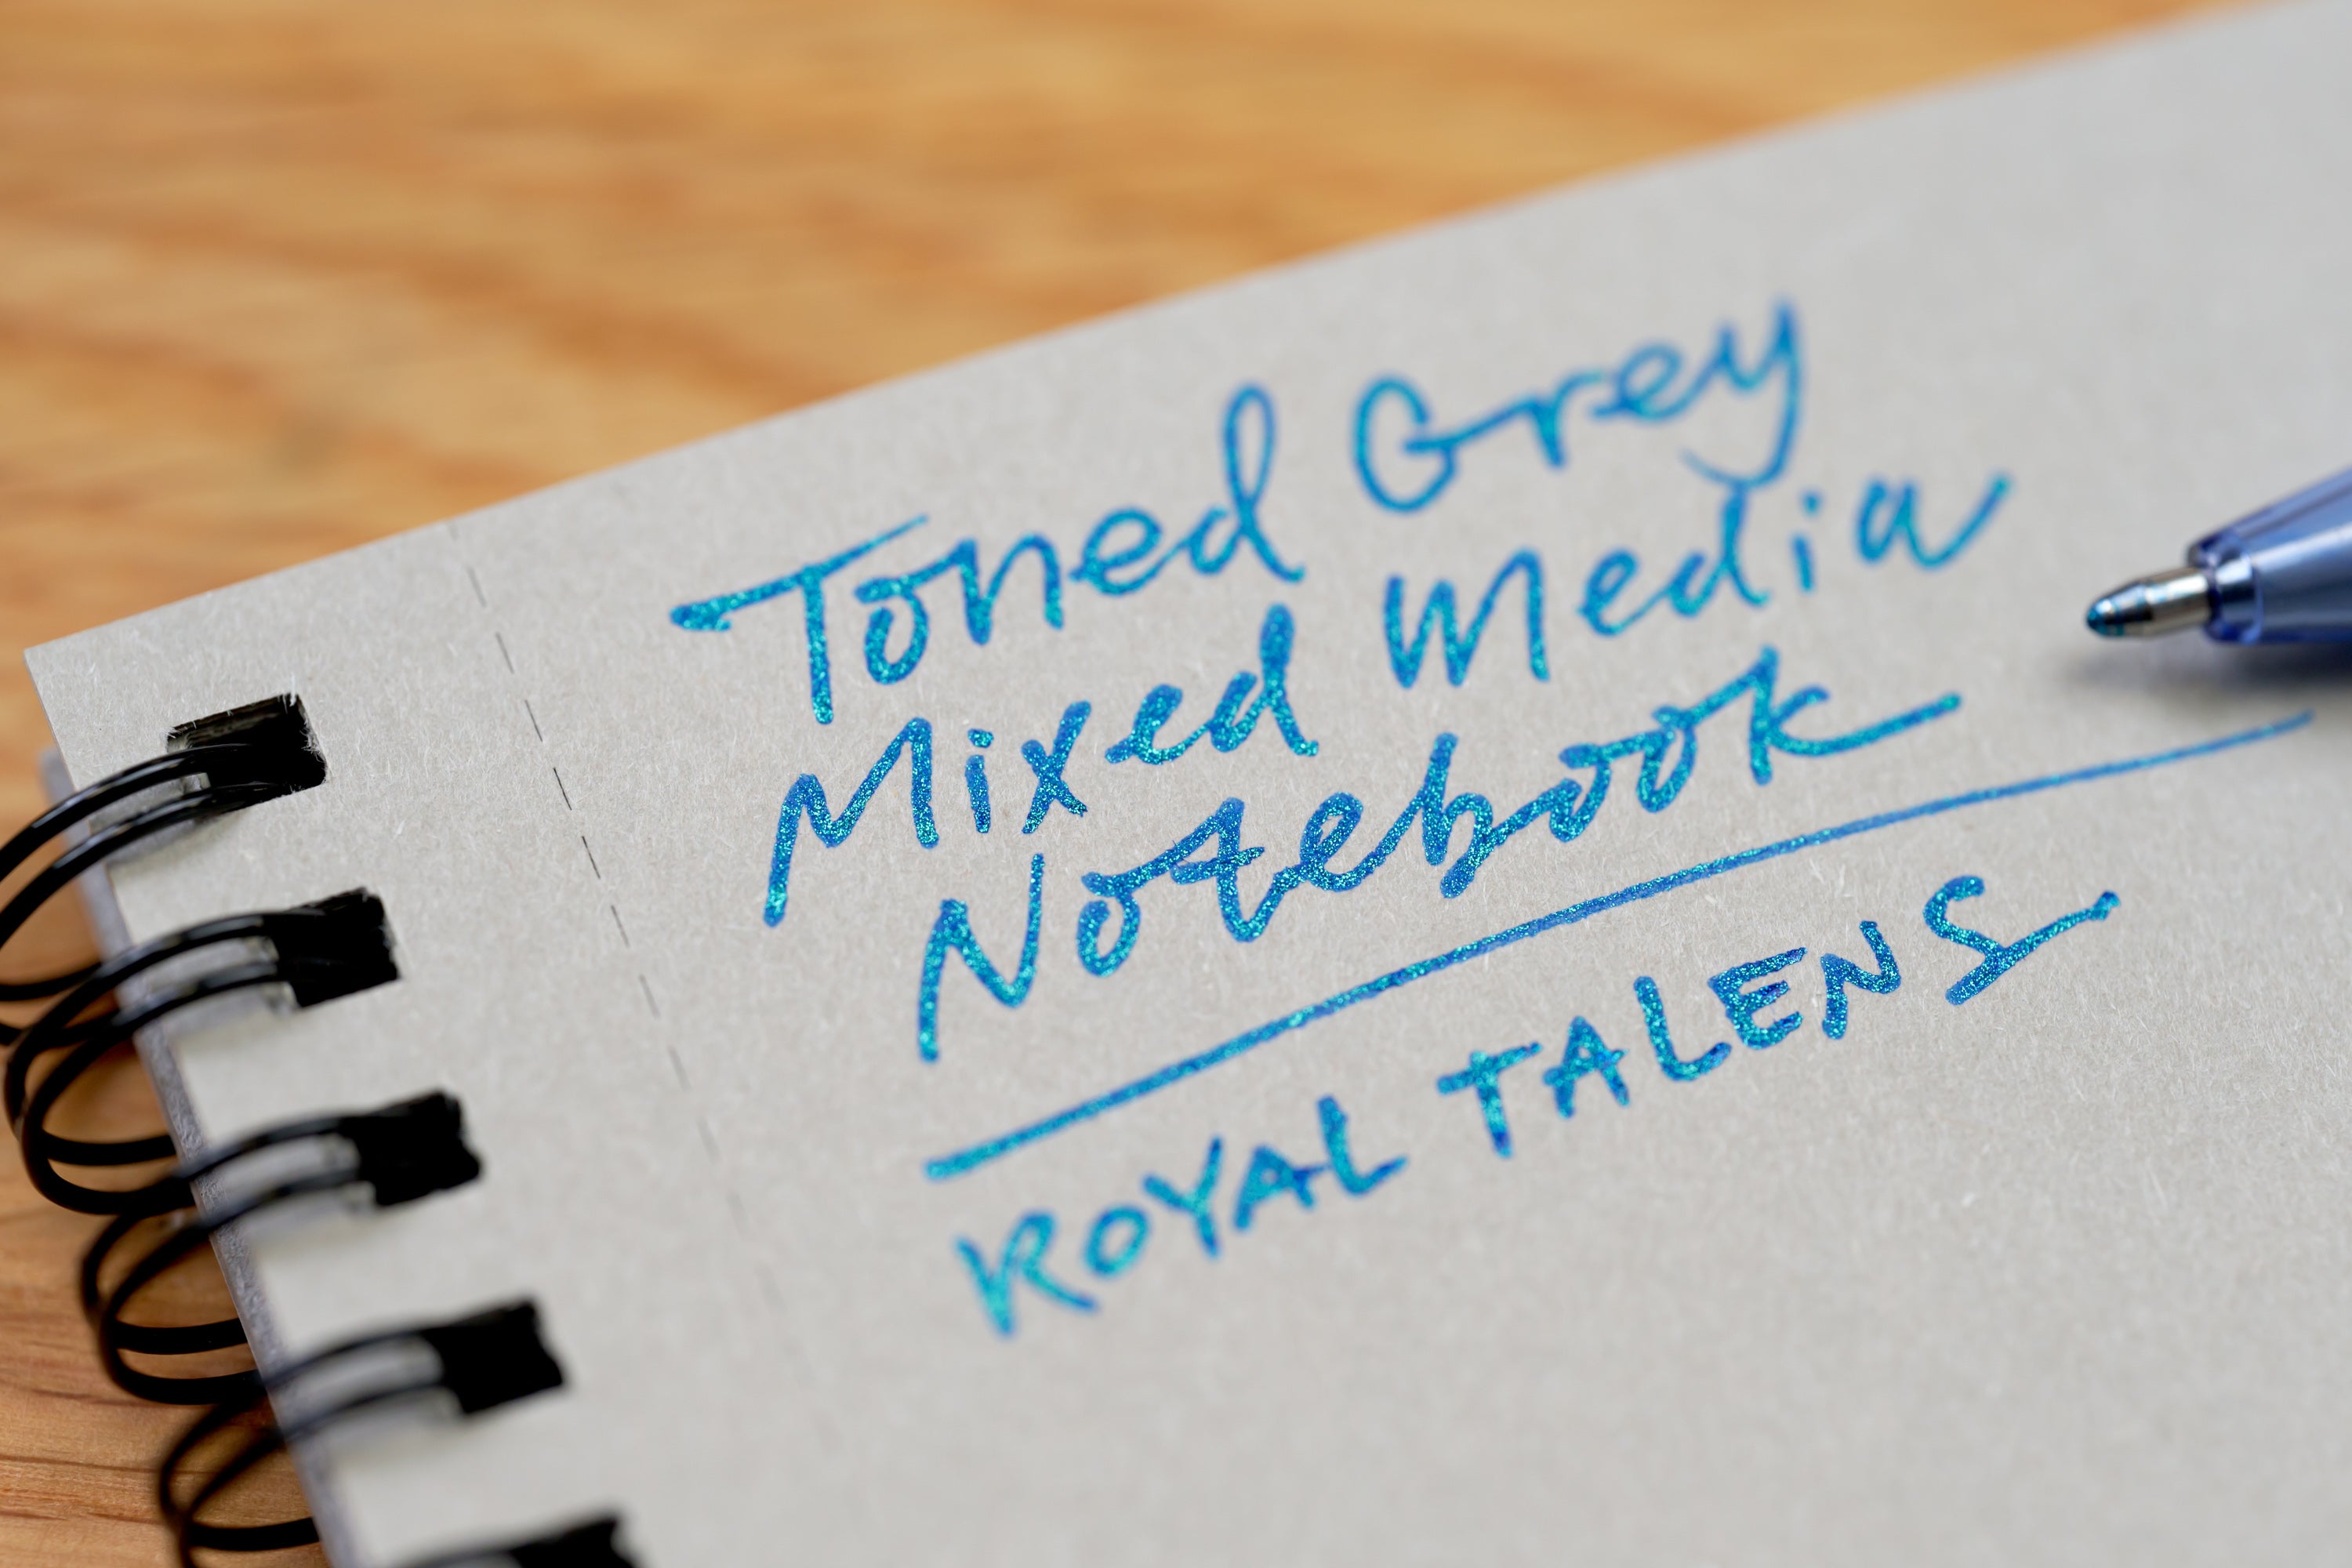 Toned Grey
Mixed Media
Notebook
ROYAL TALENS